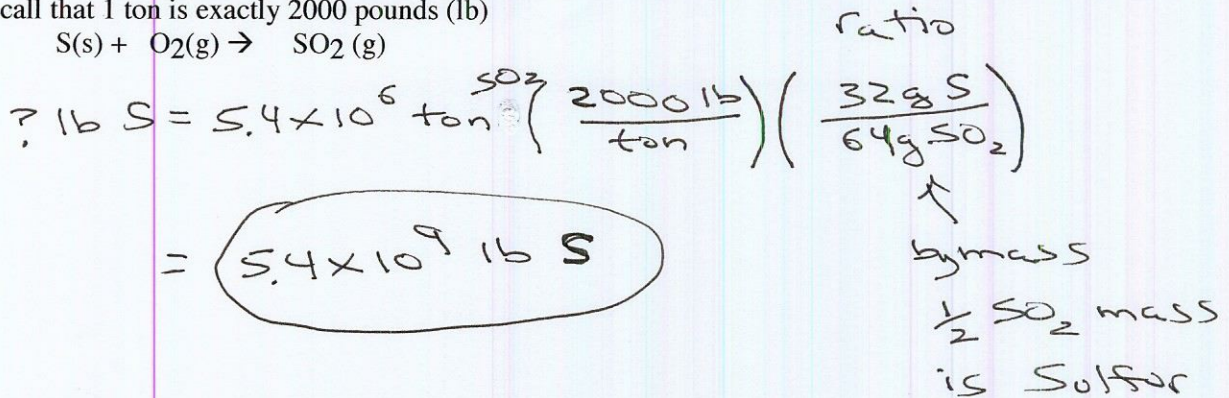 call that 1 ton is exactly 2000 pounds (lb)
S(s) + O2(g) → SO2 (g)
ratio
? lb S = 5.4×10⁶ ton SO2 (2000 lb / ton) (32g S / 64g SO₂)
= 5.4×10⁹ lb S
↑
by mass
½ SO₂ mass
is Solfur